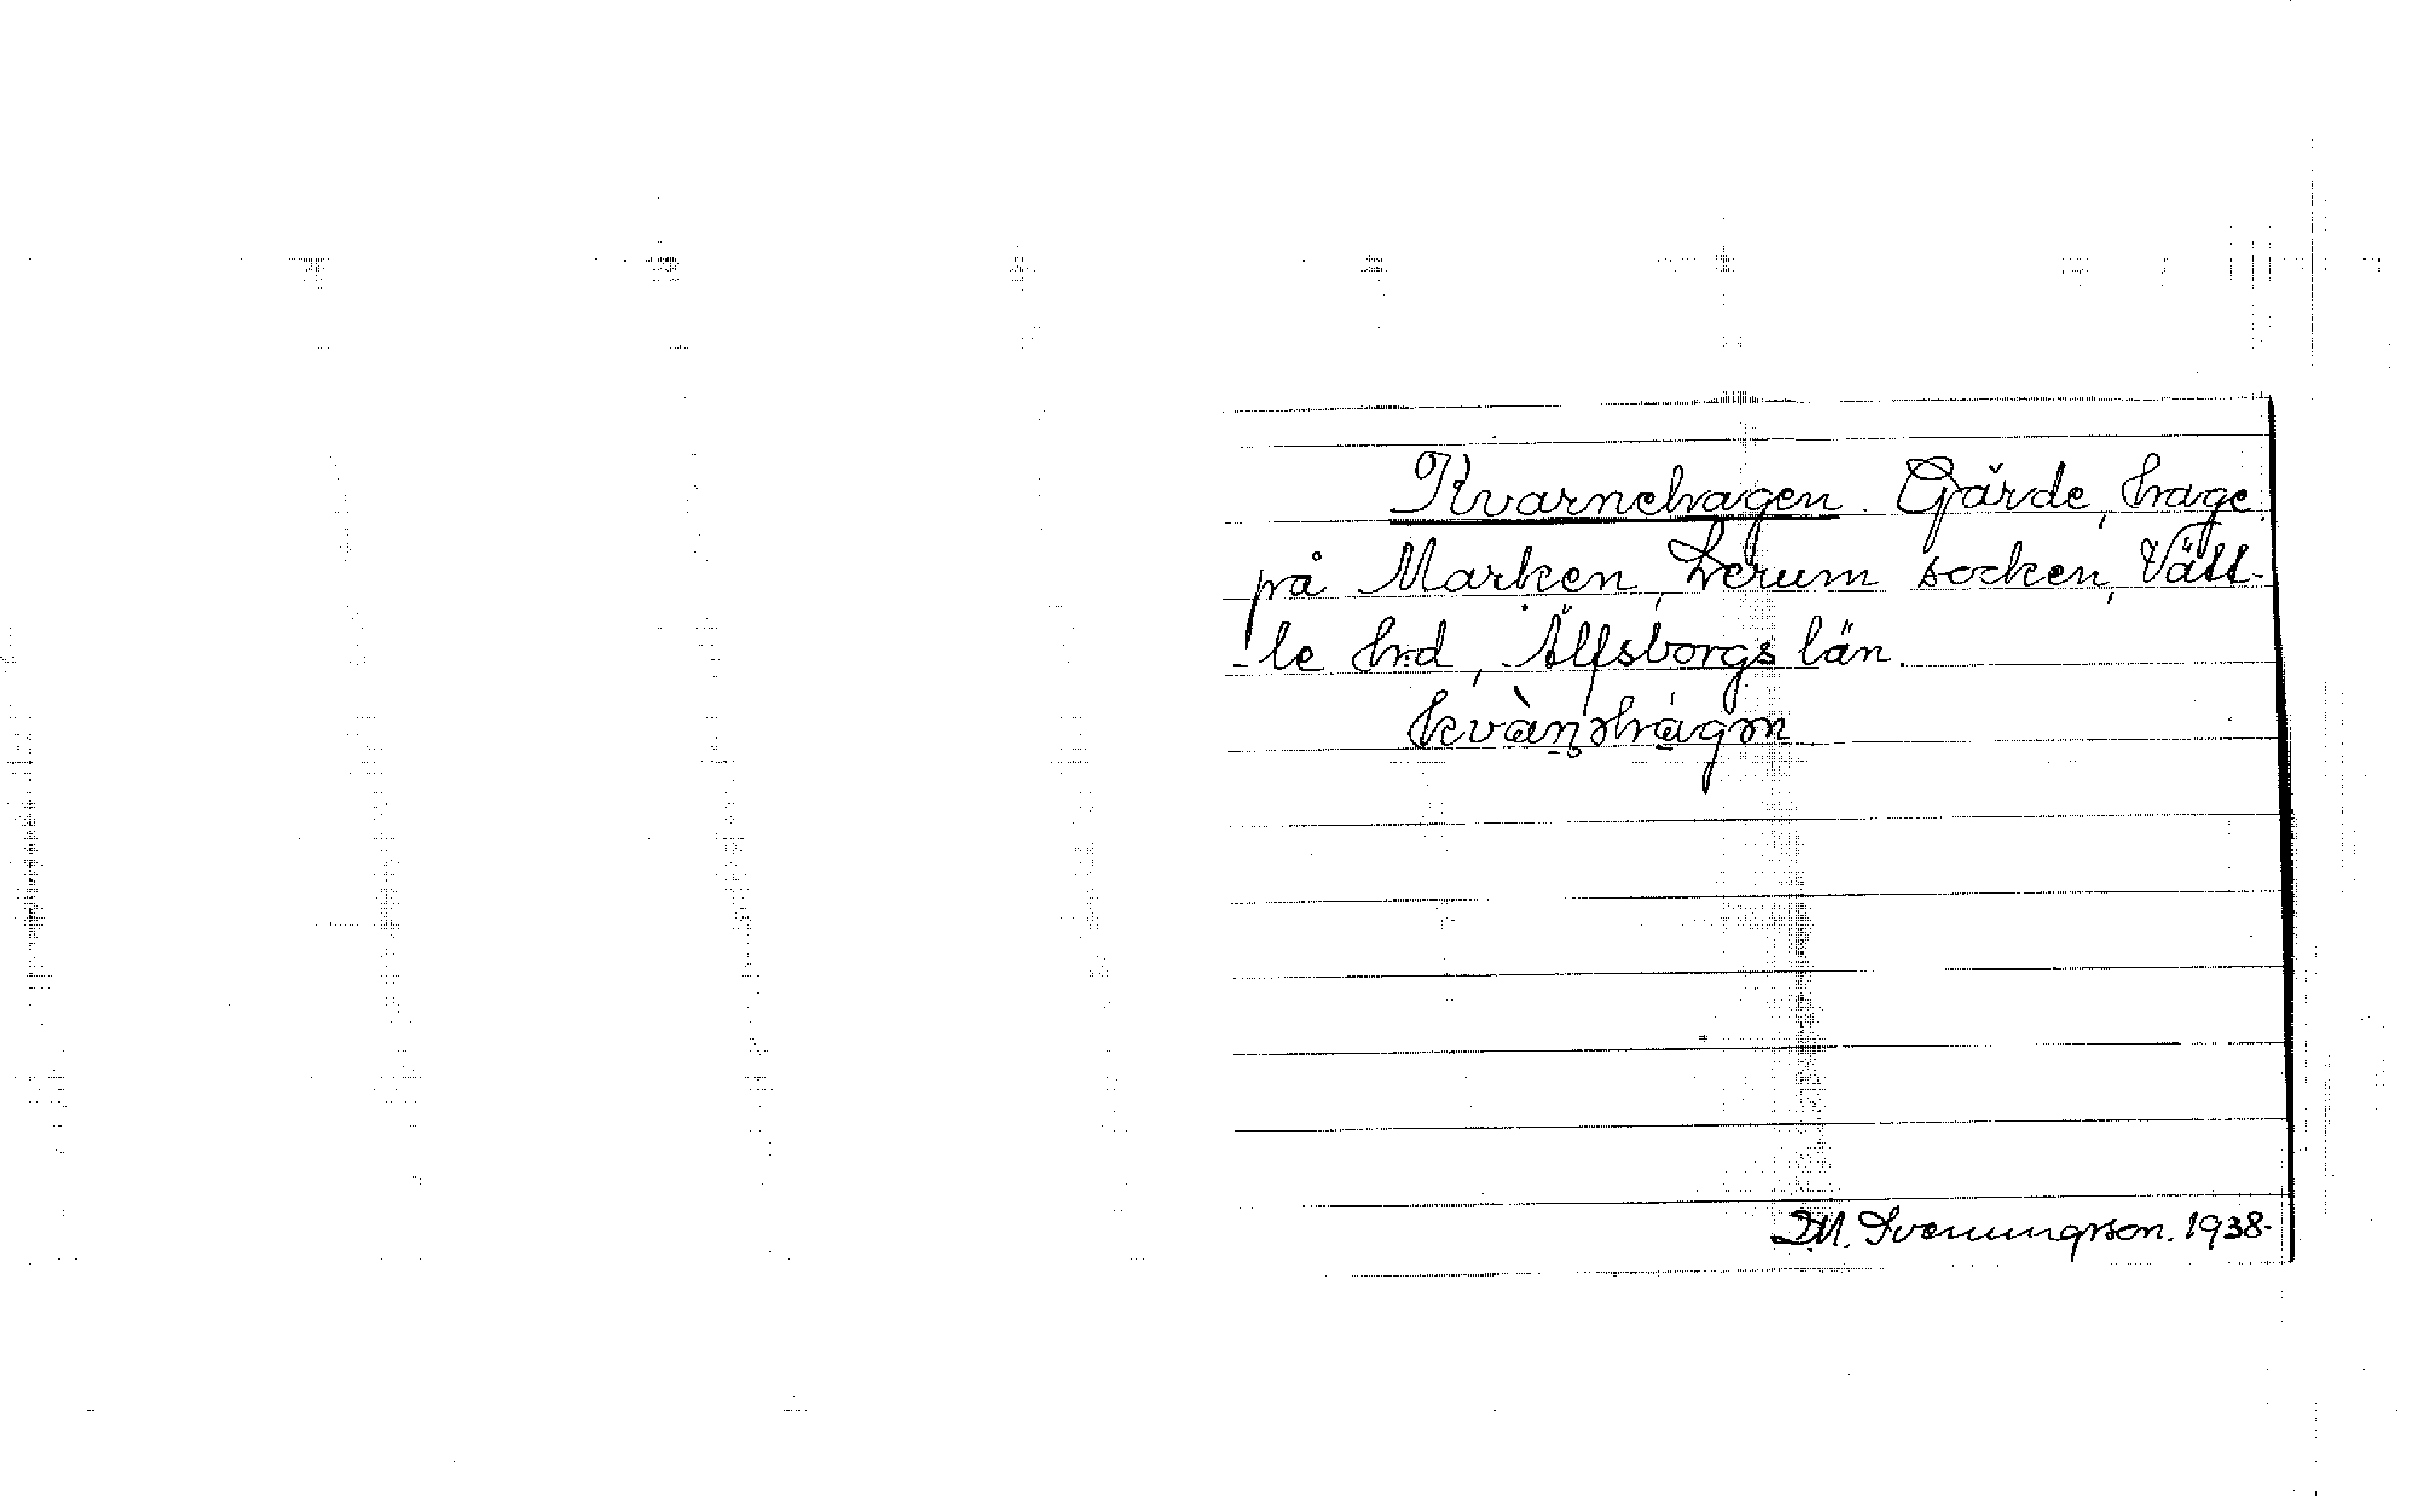 Kvarnehagen. Gärde, hage.
på Marken, Lerum socken, Vätt-
-le hrd, Älfsborgs län.
kvàṇəhágən.
D.M. Svenungsson. 1938-